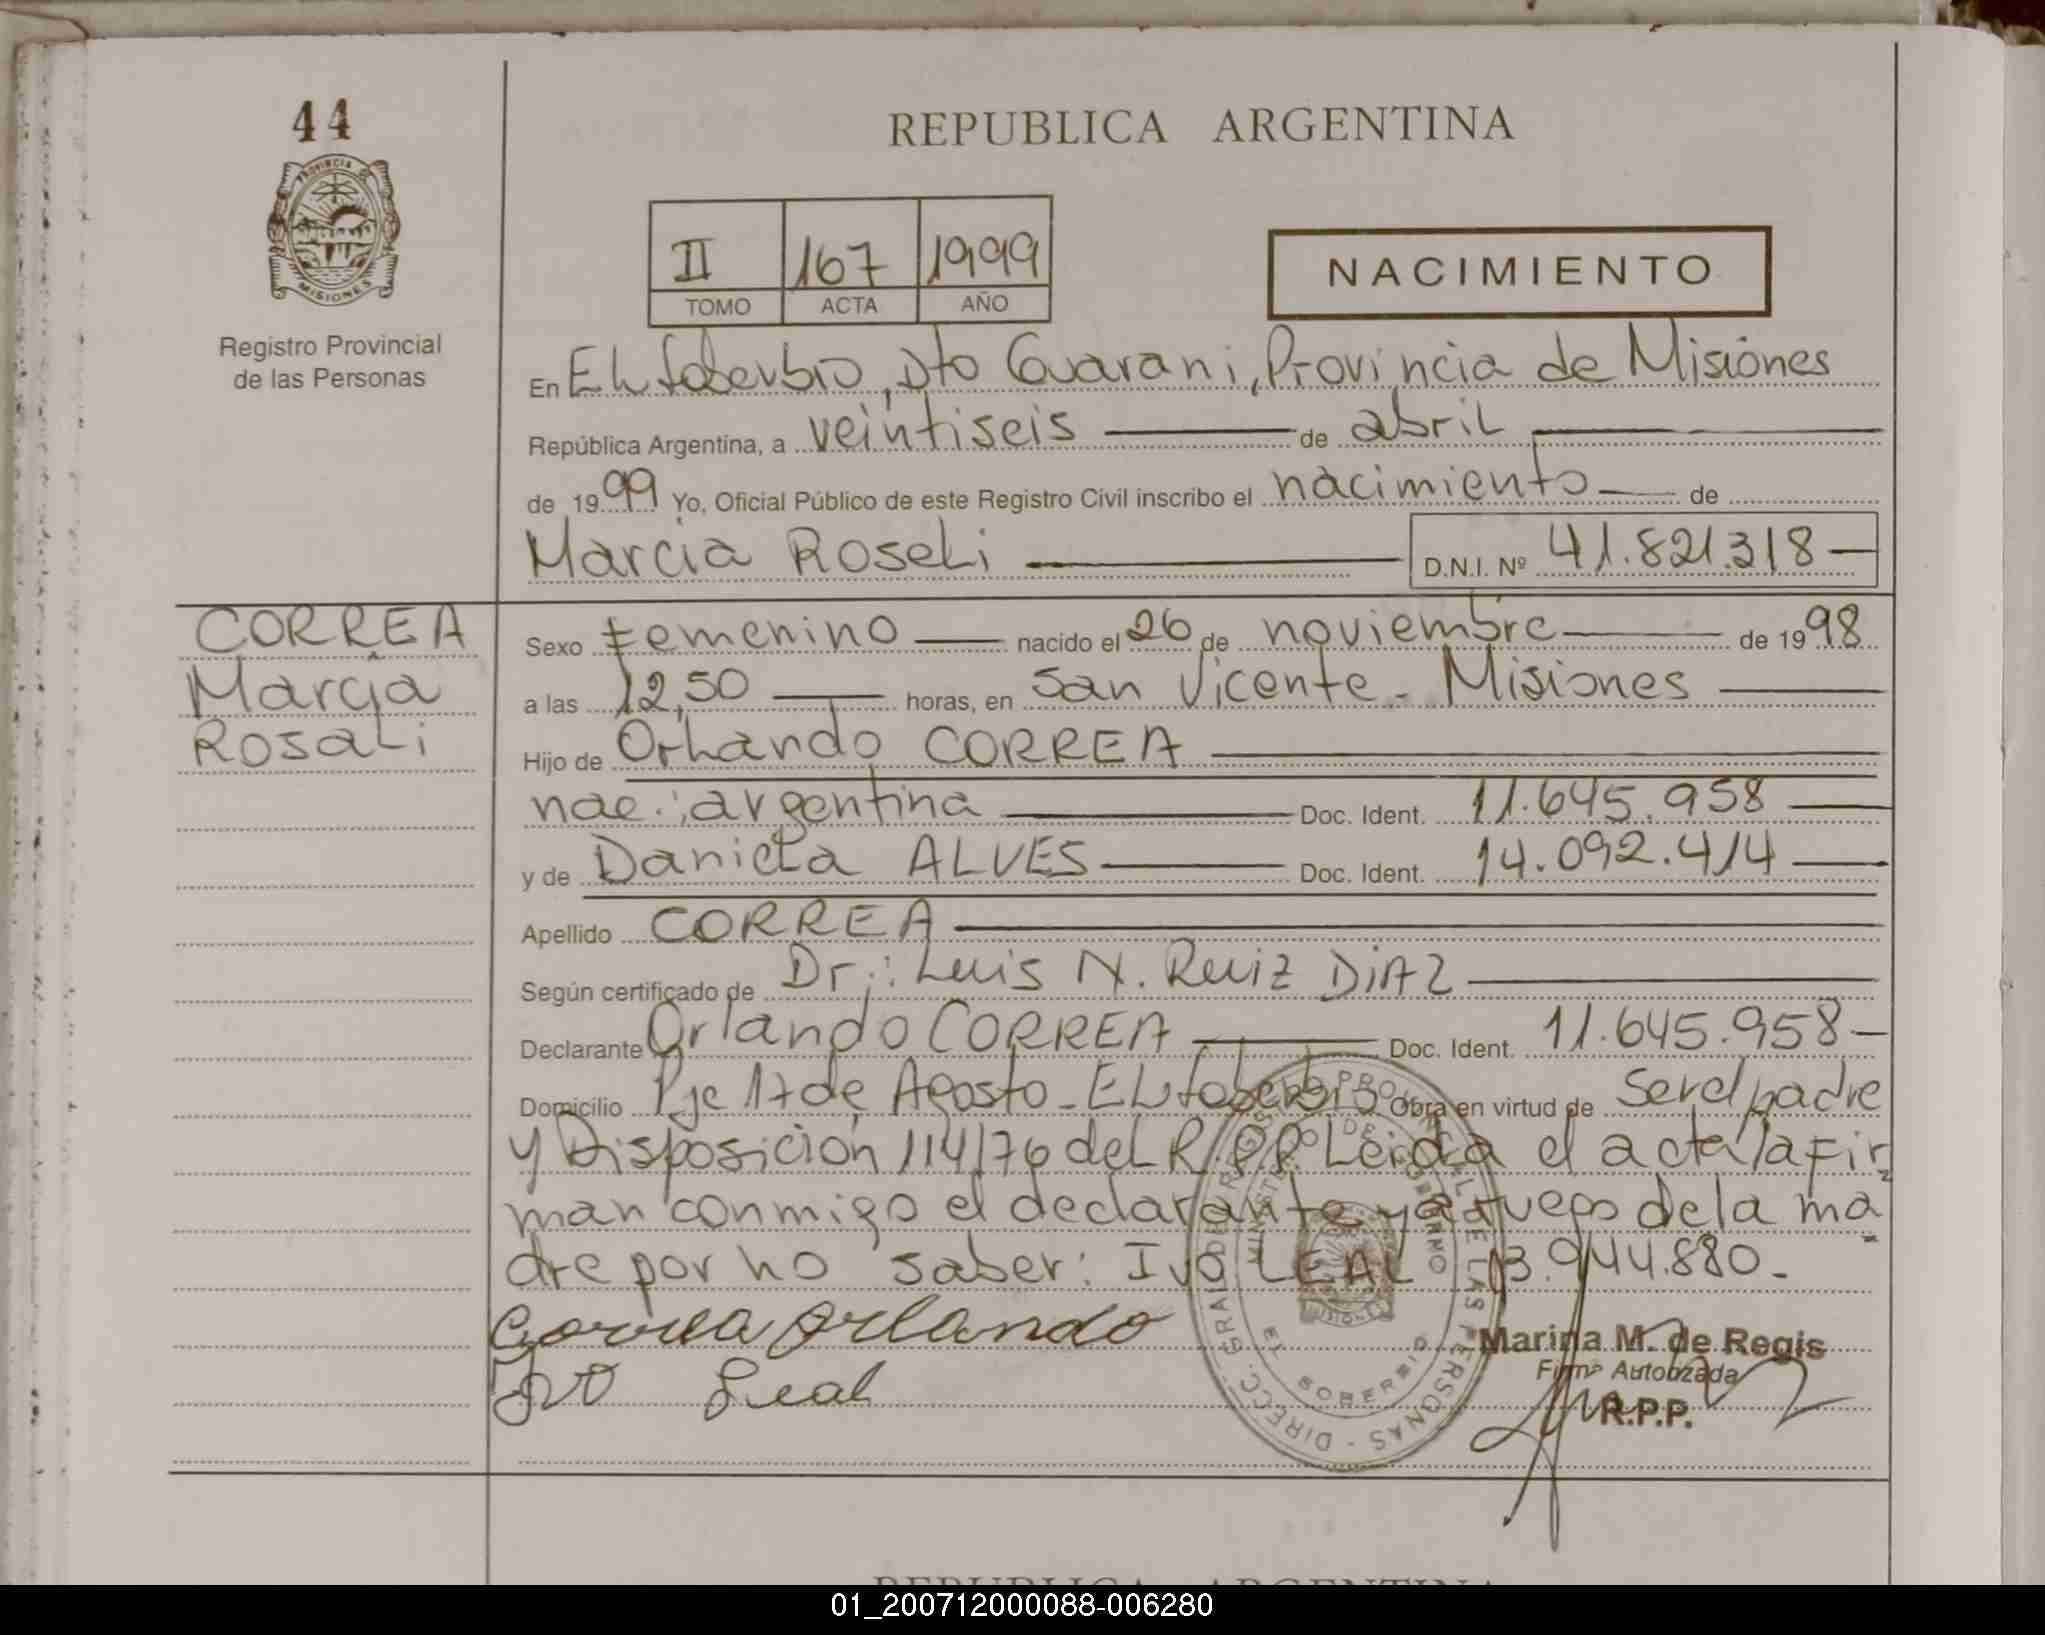 44
PROVINCIA
MISIONES
Registro Provincial
de las Personas
REPUBLICA ARGENTINA
II 167 1999
TOMO ACTA AÑO
NACIMIENTO
En El Soberbio, Dto Guarani, Provincia de Misiones
República Argentina, a veintiseis de abril
de 1999 Yo, Oficial Público de este Registro Civil inscribo el nacimiento de
Marcia Roseli D.N.I. Nº 41.821.318
CORREA
Marcia
Rosali
Sexo Femenino nacido el 26 de noviembre de 1998
a las 12,50 horas, en San Vicente - Misiones
Hijo de Orlando CORREA
nac.: argentina Doc. Ident. 11.645.958
y de Daniela ALVES Doc. Ident. 14.092.414
Apellido CORREA
Según certificado de Dr.: Luis N. Ruiz DIAZ
Declarante Orlando CORREA Doc. Ident. 11.645.958
Domicilio Pje 17 de Agosto - El Soberbio Obra en virtud de ser el padre
y Disposición 114/76 del R.P.P. Leida el acta la fir
man conmigo el declarante y a ruego de la ma
dre por no saber: Ivo LEAL 13.944.880.-
Correa Orlando
Ivo Leal
DIRECC. GRAL DE REGISTRO PROVINCIAL DE LAS PERSONAS
MINISTERIO DE GOBIERNO
EL SOBERBIO
MISIONES
Marina M. de Regis
Firma Autorizada
R.P.P.
REPUBLICA ARGENTINA
01_200712000088-006280